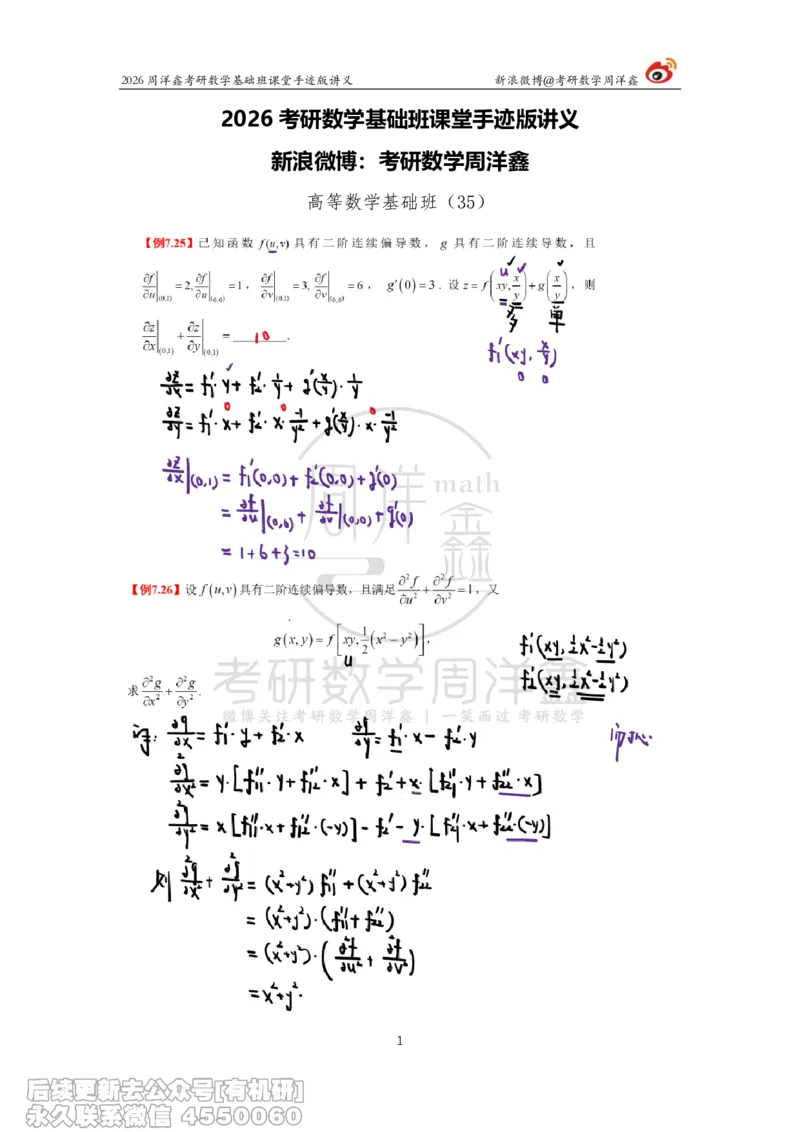 2026 周洋鑫考研数学基础班课堂手迹版讲义 新浪微博@考研数学周洋鑫
2026 考研数学基础班课堂手迹版讲义
新浪微博：考研数学周洋鑫
高等数学基础班（35）
【例7.25】已知函数 f(u,v) 具有二阶连续偏导数，g 具有二阶连续导数，且
∂f/∂u|(0,1) =2, ∂f/∂u|(0,0) =1， ∂f/∂v|(0,1) =3, ∂f/∂v|(0,0) =6， g′(0)=3 . 设 z= f(xy, x/y)+g(x/y)，则
u
多 单
∂z/∂x|(0,1) + ∂z/∂y|(0,1) = 10 .
f₁′(xy, x/y)
0 0
∂z/∂x = f₁′·y + f₂′·1/y + g′(x/y)·1/y
∂z/∂y = f₁′·x + f₂′·x·-1/y² + g′(x/y)·x·-1/y²
0 0 0
∂z/∂x|(0,1) = f₁′(0,0)+ f₂′(0,0)+g′(0)
= ∂f/∂u|(0,0) + ∂f/∂v|(0,0) + g′(0)
= 1+6+3=10
周洋 math
金鑫
【例7.26】设 f(u,v)具有二阶连续偏导数，且满足 ∂²f/∂u² + ∂²f/∂v² =1，又
g(x,y)= f[xy, 1/2(x²−y²)]，
u
f₁′(xy, ½x²-½y²)
f₂′(xy, ½x²-½y²)
求 ∂²g/∂x² + ∂²g/∂y² .
考研数学周洋鑫
微博关注考研数学周洋鑫 | 一笑而过 考研数学
∂g/∂x = f₁′·y + f₂′·x ∂g/∂y = f₁′·x − f₂′·y
∂²g/∂x² = y·[f₁₁″·y+f₁₂″·x] + f₂′+x·[f₂₁″·y+f₂₂″·x]
∂²g/∂y² = x[f₁₁″·x+f₁₂″·(-y)] − f₂′ − y·[f₂₁″·x+f₂₂″·(-y)]
则 ∂²g/∂x² + ∂²g/∂y² = (x²+y²) f₁₁″ + (x²+y²) f₂₂″
= (x²+y²)·(f₁₁″+ f₂₂″)
= (x²+y²)·(∂²f/∂u² + ∂²f/∂v²)
= x²+y².
1
后续更新去公众号[有机研]
永久联系微信 4550060